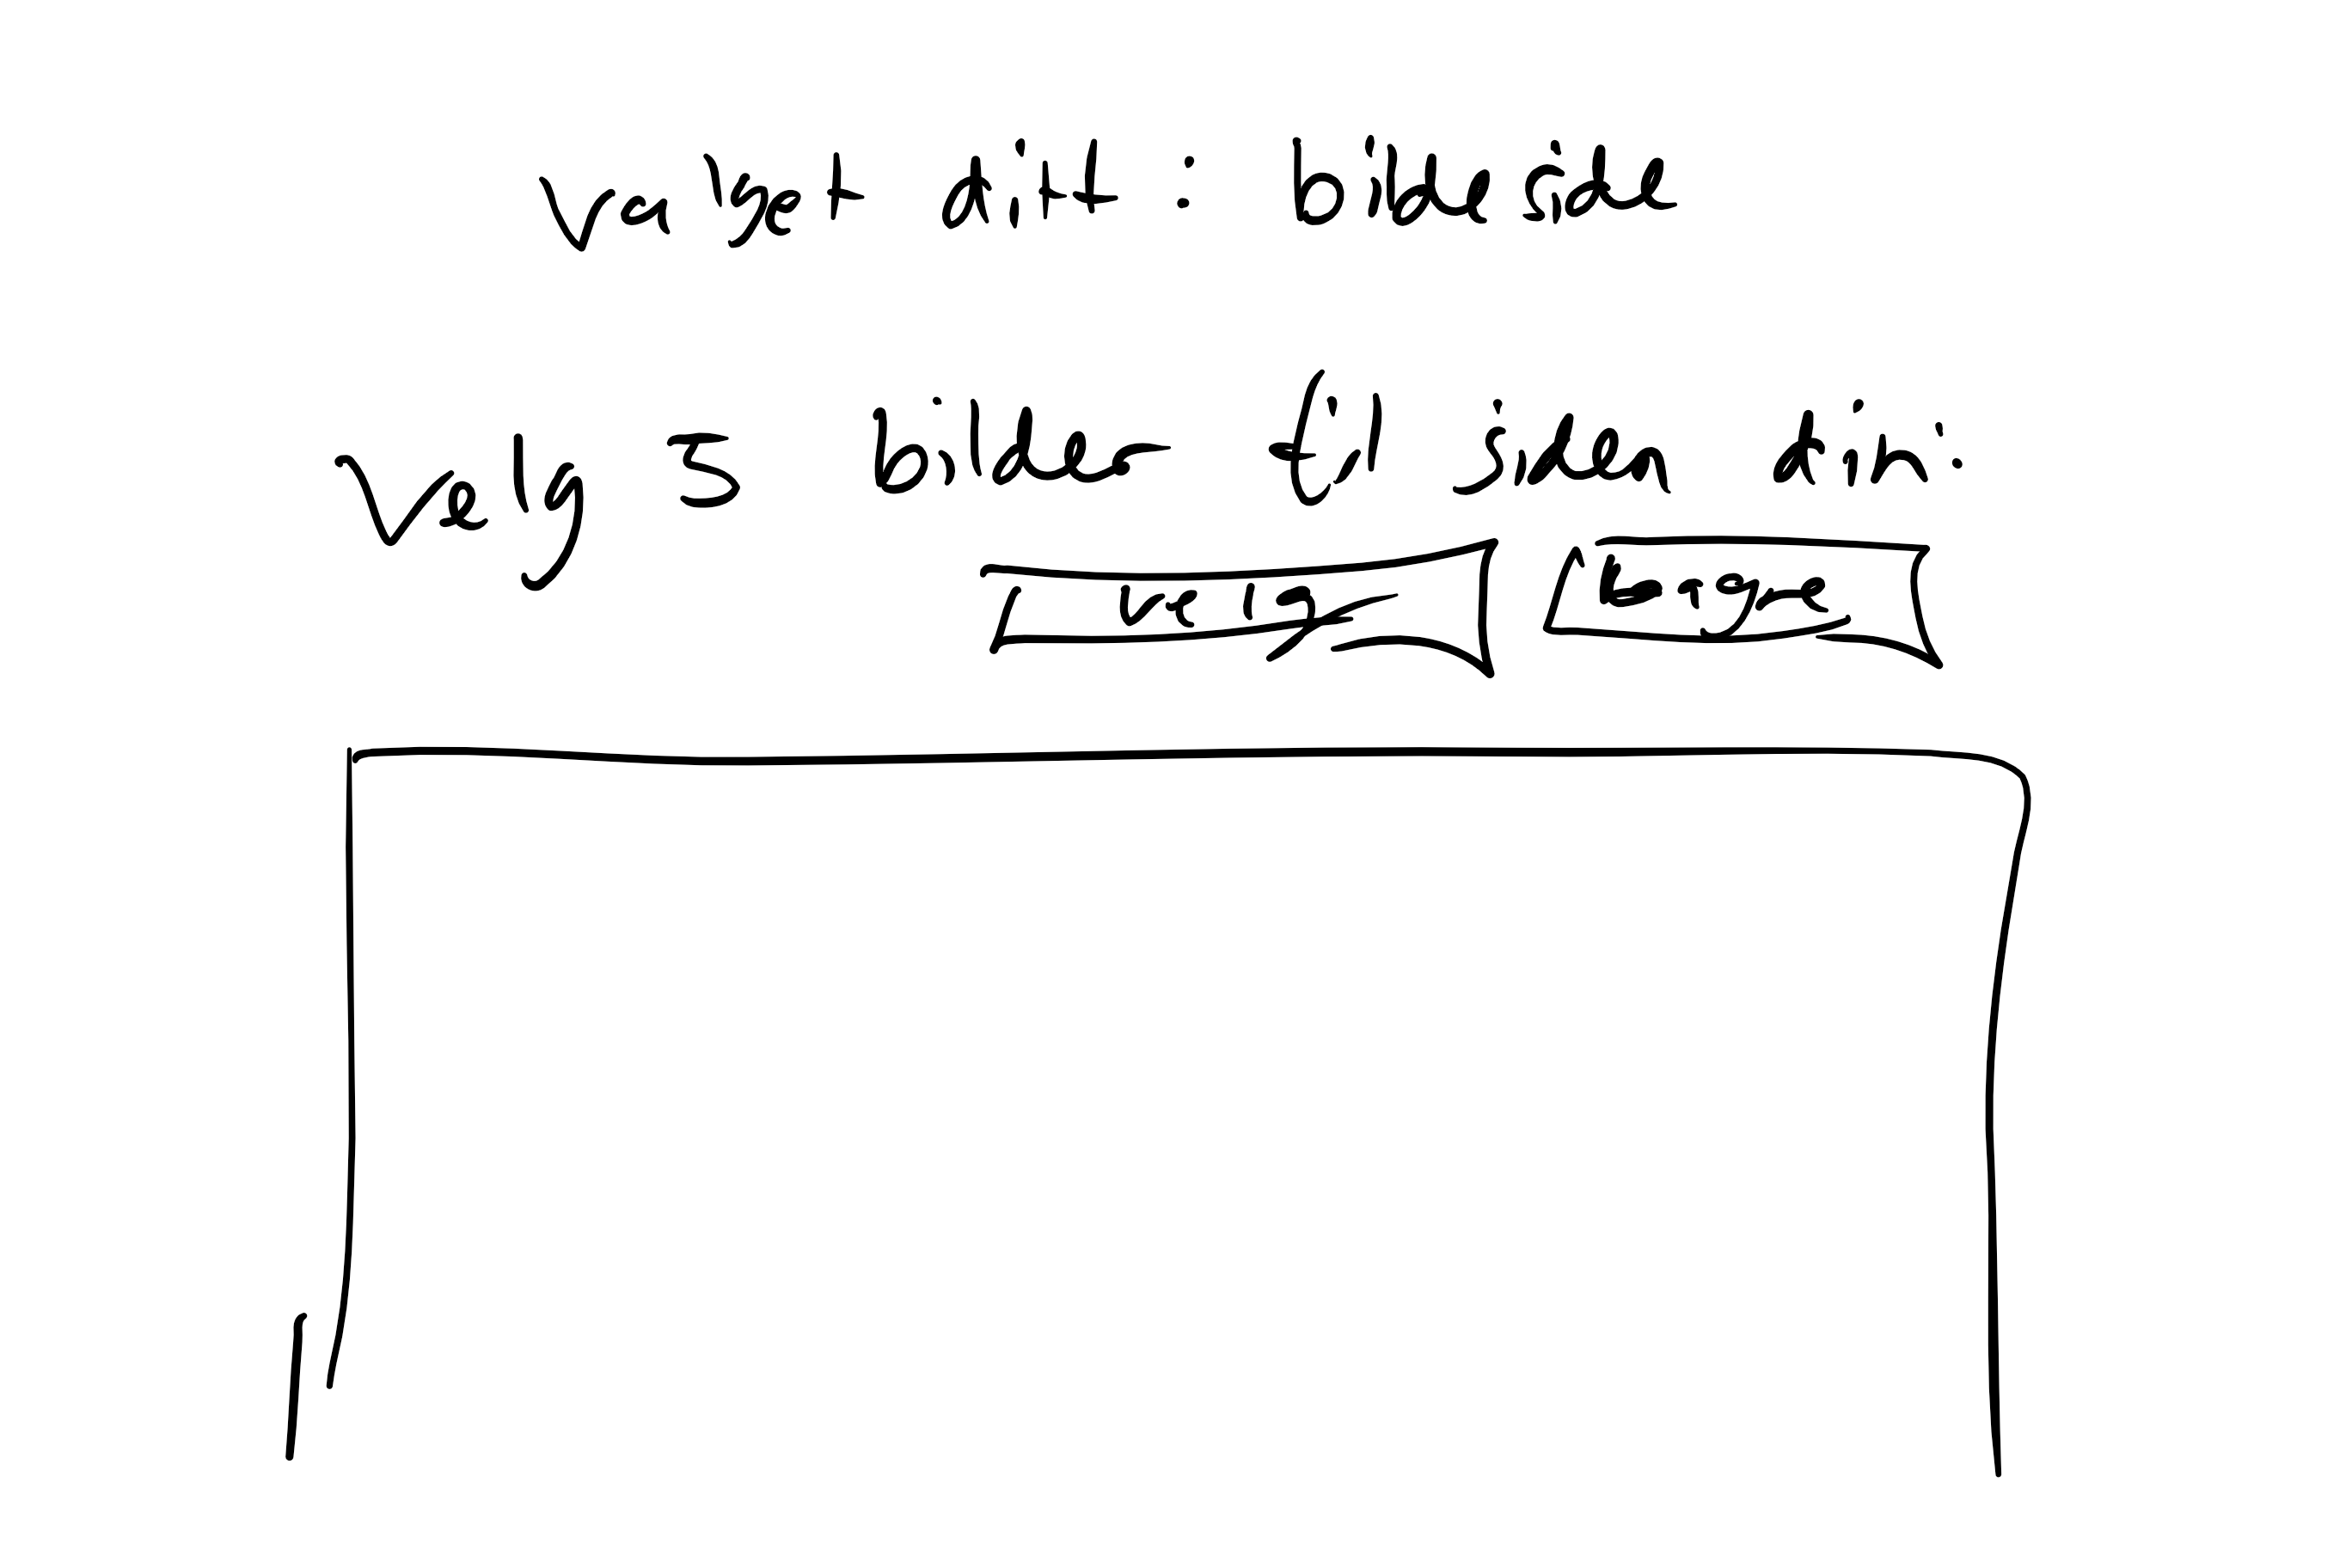 valget ditt : bildeside
Velg 5 bilder til siden din:
valg lagre